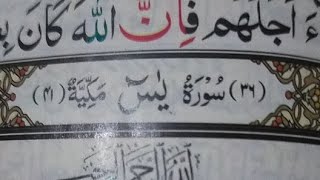 ءَ اَجَلُهُمْ فَاِنَّ اللّٰهَ كَانَ بِعِ
(٣٦) سُوْرَةُ يٰسٓ مَكِّيَّةٌ (٤١)